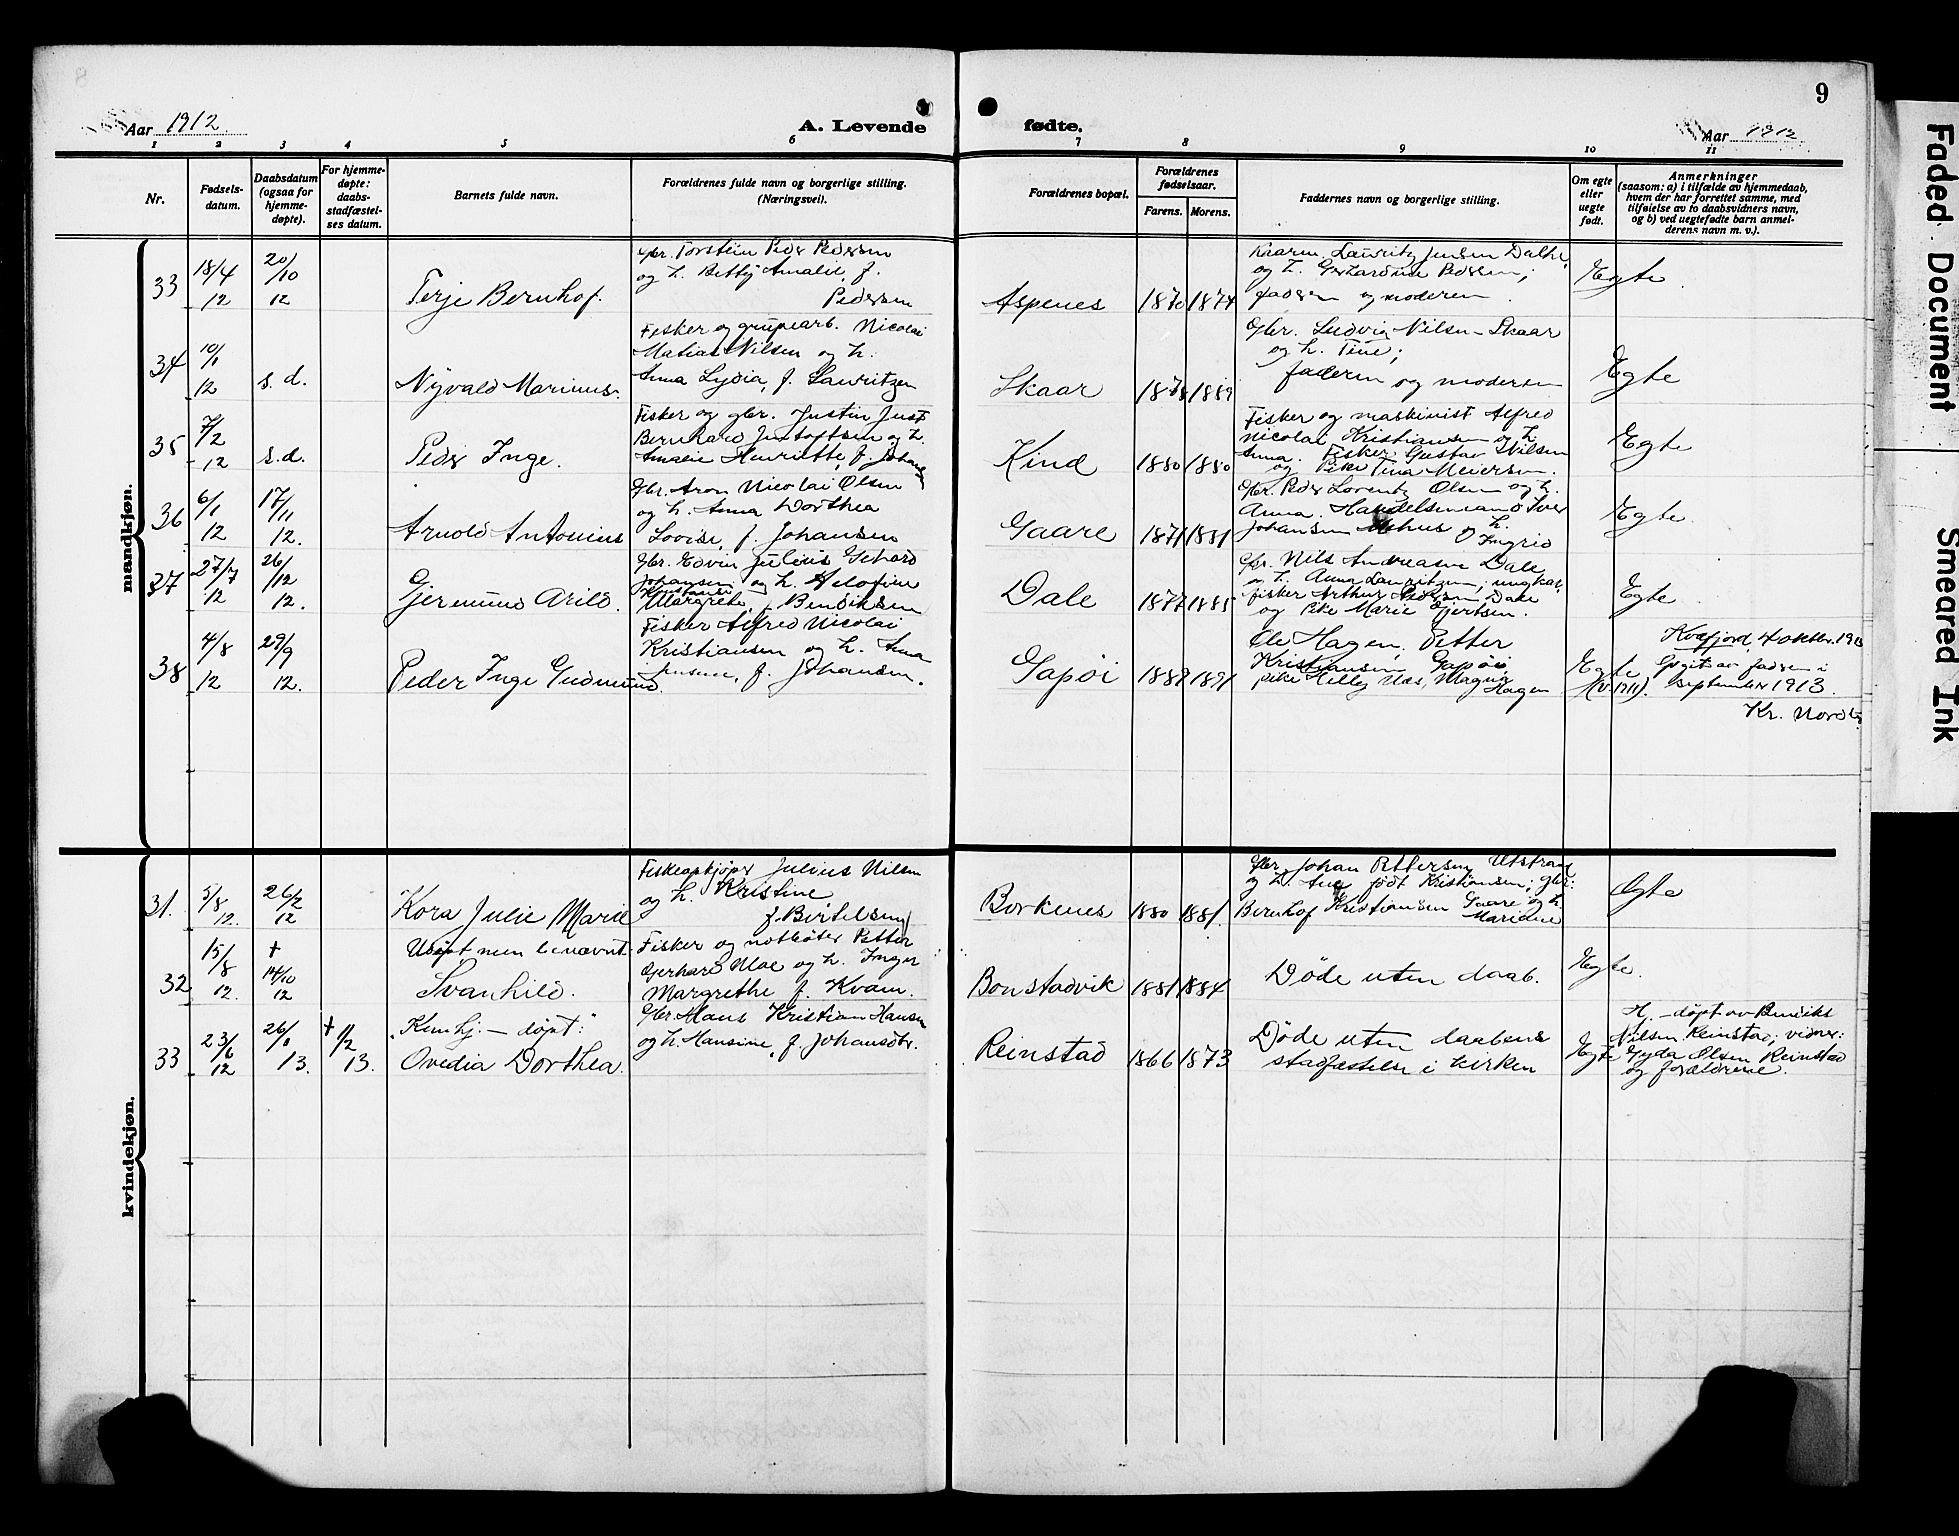 9
Aar 1912.
A. Levende
fødte.
Aar 1912
1 2 3 4 5 6 7 8 9 10 11
Nr.
Fødsels-
datum.
Daabsdatum
(ogsaa for
hjemme-
døpte).
For hjemme-
døpte:
daabs-
stadfæstel-
ses datum.
Barnets fulde navn.
Forældrenes fulde navn og borgerlige stilling.
(Næringsvei).
Forældrenes bopæl.
Forældrenes
fødselsaar.
Farens. Morens.
Faddernes navn og borgerlige stilling.
Om egte
eller
uegte
født.
Anmerkninger
(saasom: a) i tilfælde av hjemmedaab,
hvem der har forrettet samme, med
tilføielse av to daabsvidners navn,
og b) ved uegtefødte barn anmel-
derens navn m. v.).
mandkjøn.
33
18/4
12
20/10
12
Terje Bernhof.
Gbr. Torstein Peder Pedersen
og h. Betty Amalie, f.
Pedersen
Aspenes
1870 1874
Lauritz Jensen Dalhe,
og h. Pedersen;
faderen og moderen
Egte
34
10/1
12
s. d.
Nyvald Marinus.
Fisker og grubearb. Nicolai
Matias Nilsen og h.
Anna Lydia, f. Lauritzen
Skaar
1878 1889
Gbr. Ludvig Nilsen Skaar
og h. Tine;
faderen og moderen
Egte
35
7/2
12
s. d.
Peder Inge.
Fisker og gbr. Justin Just
Bernhard Justoftsen og h.
Amalie Henriette, f. Johansen
Kind
1880 1880
Fisker og maskinist Alfred
Nicolai Kristiansen og h.
Anna. Fisker Gustav Nilsen
og Pike Tina Meiersen.
Egte
36
6/1
12
17/11
12.
Arnold Antonius
Gbr. Aron Nicolai Olsen
og h. Anna Dorthea
Lovise, f. Johansen
Gaare
1871 1881
Gbr. Peder Lorentz Olsen og h.
Anna. Handelsmand Iver
Johansen Aahus og h.
Ingrid
Egte
37
27/7
12
26/12
12.
Gjermund Arild.
Gbr. Edvin Julius Gerhard
Johansen og h.
Margrethe, f. Bendiksen
Dale
1877 1885
Gbr. Nils Andreasen Dale
og h. Anna Lauritzen; ungkar,
fisker Arthur Pedersen Dale
og Pike Marie Gjertsen.
Egte
38
4/8
12
29/9
12.
Peder Inge Gudmund.
Fisker Alfred Nicolai
Kristiansen og h. Anna
Jensine, f. Johansen.
Gapøi
1889 1891
Ole Hagen, Petter
Kristiansen Gapøi
pike Hilly Næs, Magna
Hagen
Egte
(v. 1911).
Kvæfjord, 4 oktbr. 1913
Opgit av faderen i
september 1913.
Kr. Nordby
kvindekjøn.
31.
5/8
12.
26/2
12
Kora Julie Marie
Fiskeopkjøper Julius Nilsen
og h. Kristine,
f. Bertelsen
Borkenes
1880 1881.
Gbr. Johan Pettersen Utstrand
og h. Ane født Kristiansen; gbr.
Bernhof Kristiansen Gaare og h.
Mariane
Egte
32
15/8
12.
+
14/10
12
Udøpt, men benævnt
Svanhild.
Fisker og notbøter Petter
Gerhard Moe og h. Inger
Margrethe f. Kvam.
Bonstadvik
1881 1884
Døde uten daab.
Egte.
33
23/6
12
26/1
13.
+ 1/2
13.
"Kun hj.-døpt:"
Ovedia Dorthea.
Gbr. Hans Kristian Hansen
og h. Hansine, f. Johansdtr.
Reinstad
1866 1873
Døde uten daabens
stadfæstelse i kirken
Egte
Hj.-døpt av Bendiks
Nilsen Reinstad; vidner:
Gyda Olsen Reinstad
og forældrene.
Faded Document
Smeared Ink